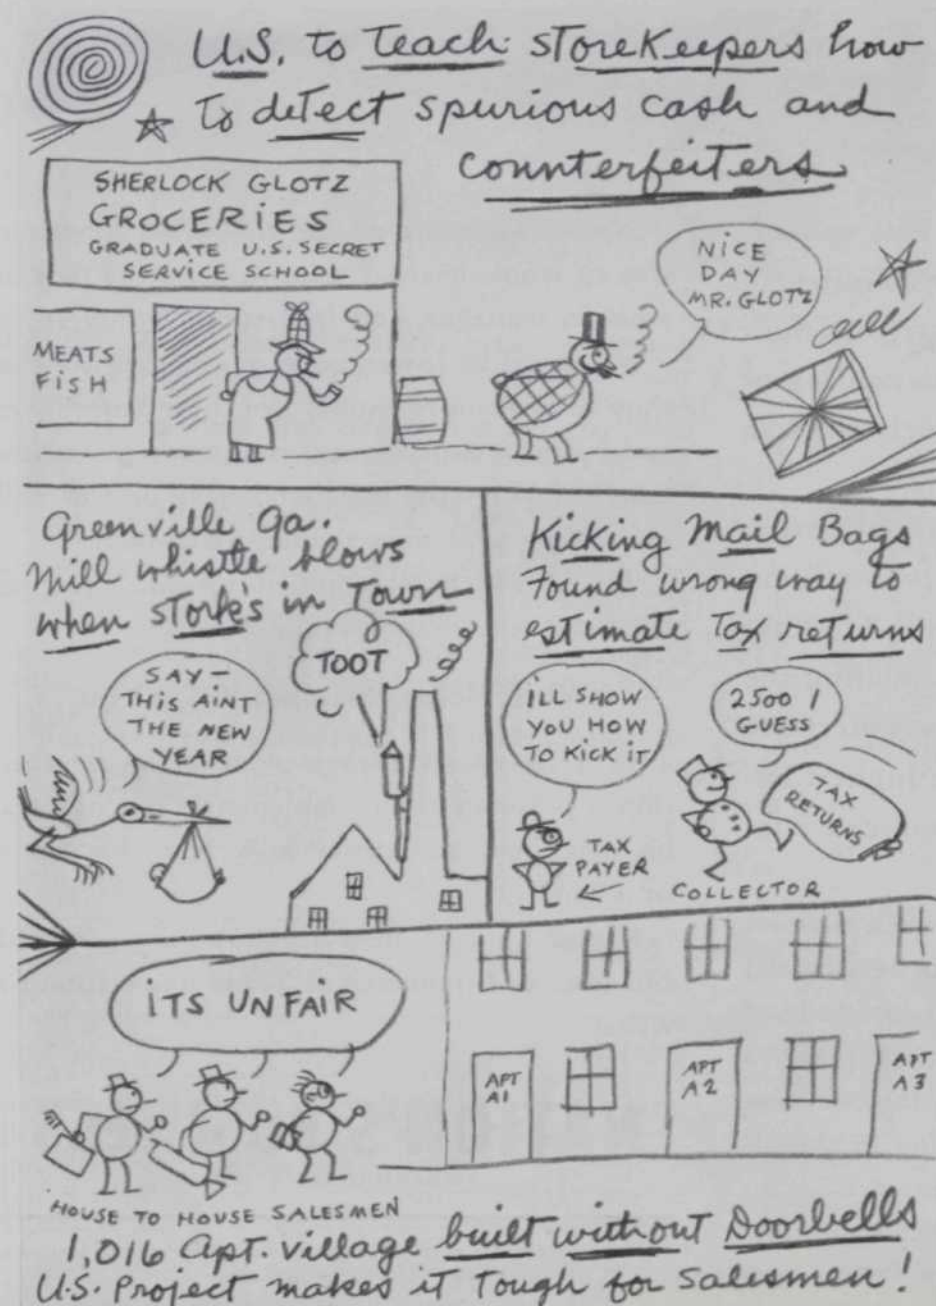 U.S. to teach storeKeepers how
to detect spurious cash and
counterfeiters
SHERLOCK GLOTZ
GROCERIES
GRADUATE U.S. SECRET
SERVICE SCHOOL
MEATS
FISH
NICE
DAY
MR. GLOTZ
Greenville Ga.
Mill whistle blows
when stork's in Town
SAY –
THIS AINT
THE NEW
YEAR
TOOT
Kicking Mail Bags
Found wrong way to
estimate Tax returns
ILL SHOW
YOU HOW
TO KICK IT
2500 I
GUESS
TAX
RETURNS
TAX
PAYER
COLLECTOR
ITS UNFAIR
APT
A1
APT
A2
APT
A3
HOUSE TO HOUSE SALESMEN
1,016 Apt. village built without Doorbells
U.S. Project makes it Tough for Salesmen!